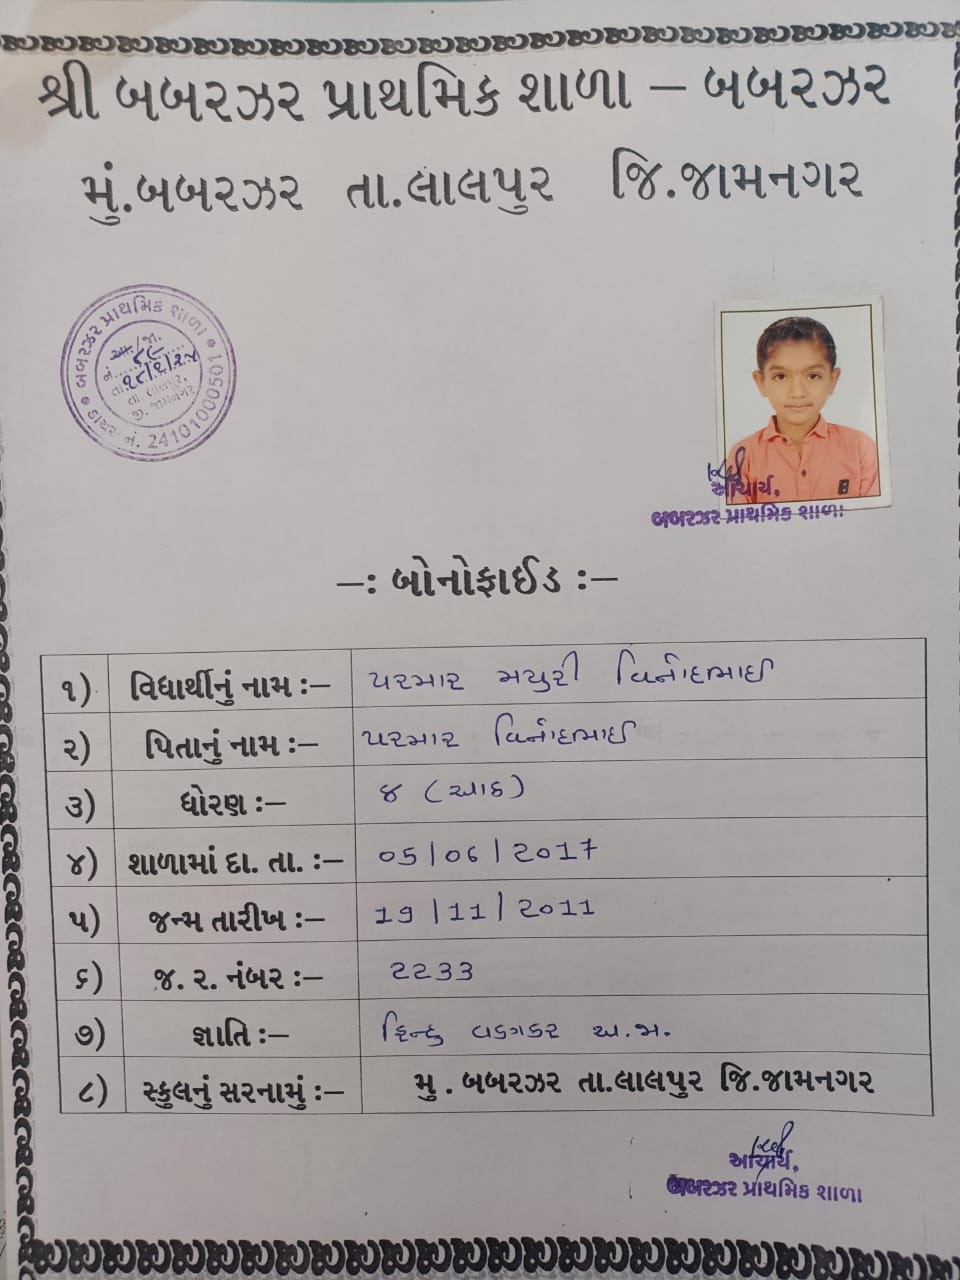 શ્રી બબરઝર પ્રાથમિક શાળા – બબરઝર
મું.બબરઝર તા.લાલપુર જિ.જામનગર
બબરઝર પ્રાથમિક શાળા
આ./જા.
નં.
તા.
તા. લાલપુર,
જી. જામનગર
ડાયસ નં. 24101000501
આચાર્ય,
બબરઝર પ્રાથમિક શાળા
–: બોનોફાઈડ :–
૧) વિધાર્થીનું નામ :– પરમાર મયુરી વિનોદભાઈ
૨) પિતાનું નામ :– પરમાર વિનોદભાઈ
૩) ધોરણ :– ૪ (આઠ)
૪) શાળામાં દા. તા. :– 05/06/2017
૫) જન્મ તારીખ :– 19/11/2011
૬) જ. ર. નંબર :– 2233
૭) જ્ઞાતિ :– હિન્દુ વણકર અ.જા.
૮) સ્કુલનું સરનામું :– મુ . બબરઝર તા.લાલપુર જિ.જામનગર
આચાર્ય,
બબરઝર પ્રાથમિક શાળા